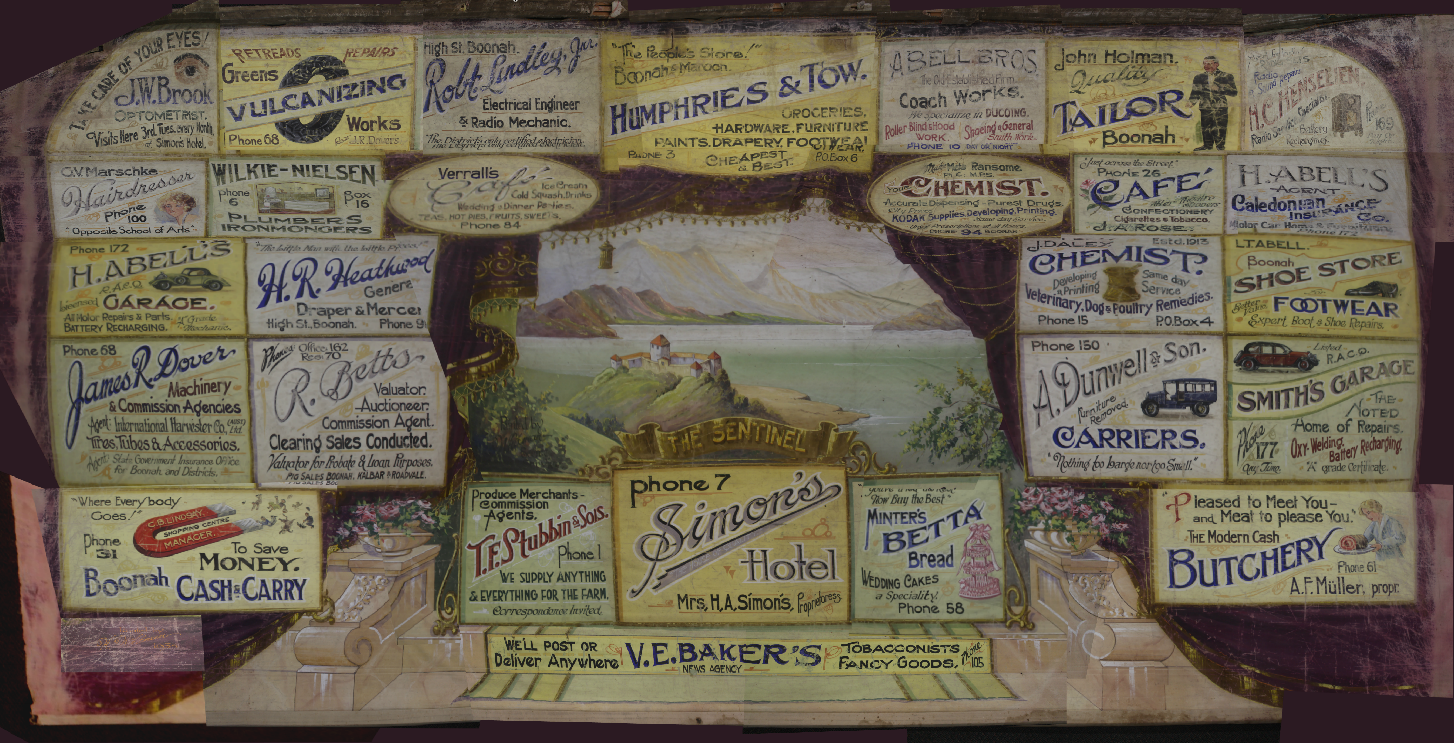 TAKE CARE OF YOUR EYES!
J.W. Brook
OPTOMETRIST.
Visits Here 3rd. Tues. every Month,
at Simons Hotel.
RETREADS REPAIRS
Greens
VULCANIZING
Works
Phone 68
J.R. Dover's
High St. Boonah.
Robt. Lindley, Jnr.
Electrical Engineer
& Radio Mechanic.
The District's only certified electrician.
"The People's Store!"
Boonah & Maroon.
HUMPHRIES & TOW.
GROCERIES,
HARDWARE, FURNITURE
PAINTS, DRAPERY, FOOTWEAR
PHONE 3
CHEAPEST
& BEST.
P.O. Box 6
ABELL BROS.
the Old Established Firm
Coach Works.
We Specialise in DUCOING.
Roller Blind & Hood
WORK.
Shoeing & General
Smith Work.
PHONE 10 DAY OR NIGHT
John Holman.
Quality
TAILOR
Boonah
Radio
H.C. HENSELEIN
Radio Service
Battery
Recharging.
169
O.V Marschke
Hairdresser
Phone
100
"Opposite School of Arts"
WILKIE-NIELSEN
phone
6
Box
16
PLUMBERS
IRONMONGERS
Verrall's
Café
Ice Cream
Cold Squash Drinks
Wedding & Dinner Parties,
TEAS, HOT PIES, FRUITS, SWEETS.
Phone 84
Ransome.
Your
CHEMIST.
Accurate Dispensing - Purest Drugs.
KODAK Supplies, Developing, Printing.
PHONE 94 BOONAH
"Just across the Street."
Phone 26
CAFE'
CONFECTIONERY
Cigarettes & Tobacco.
J.A. ROSE.
H. ABELL'S
AGENT
Caledonian
INSURANCE
Co.
Motor Car Hoods & Furniture
Phone 172
Phone 172
H. ABELL'S
R.A.C.Q.
Licensed
GARAGE.
All Motor Repairs & Parts.
BATTERY RECHARGING.
"A" Grade
Mechanic.
"The little Man with the little
H.R. Heathwood
General
Draper & Mercer
High St. Boonah.
Phone 9
J. DALEY
Estd. 1913
CHEMIST.
Developing
& Printing
Same day
Service
Veterinary, Dog & Poultry Remedies.
Phone 15
P.O. Box 4
L.T. ABELL.
Boonah
SHOE STORE
Better
FOOTWEAR
Expert Boot & Shoe Repairs.
Phone 68
James R. Dover
Machinery
& Commission Agencies
Agent: International Harvester Co. (AUST) Ltd.
Tires, Tubes & Accessories.
Agent State Government Insurance Office
for Boonah and Districts.
Phones Office 162
Res. 70
R. Betts
Valuator.
Auctioneer.
Commission Agent.
Clearing Sales Conducted.
Valuator for Probate & Loan Purposes.
PIG SALES BOONAH, KALBAR & ROADVALE.
Phone 150
A. Dunwell & Son.
Furniture
Removed.
CARRIERS.
"Nothing too Large nor too Small."
Listed
R.A.C.Q.
SMITH'S GARAGE
THE
NOTED
Home of Repairs.
Phone
177
Any Time.
Oxy-Welding.
Battery Recharging.
"A" grade Certificate.
THE SENTINEL
"Where Everybody
Goes!"
C.B. LINDSAY.
SHOPPING CENTRE
MANAGER
Phone
31
To Save
MONEY.
Boonah CASH & CARRY
Produce Merchants -
Commission
Agents.
T.F. Stubbin & Sons.
Phone 1
WE SUPPLY ANYTHING
& EVERYTHING FOR THE FARM.
Correspondence Invited.
phone 7
Simon's
Hotel
Mrs. H.A. Simon's, Proprietress
"Now Buy the Best"
MINTER'S
BETTA
Bread
WEDDING CAKES
a Speciality.
Phone 58
"Pleased to Meet You -
and Meat to please You."
THE Modern Cash
BUTCHERY
Phone 61
A.F. Müller, propr.
WE'LL POST OR
Deliver Anywhere
V.E. BAKER'S
NEWS AGENCY
TOBACCONISTS
FANCY GOODS.
Phone
105